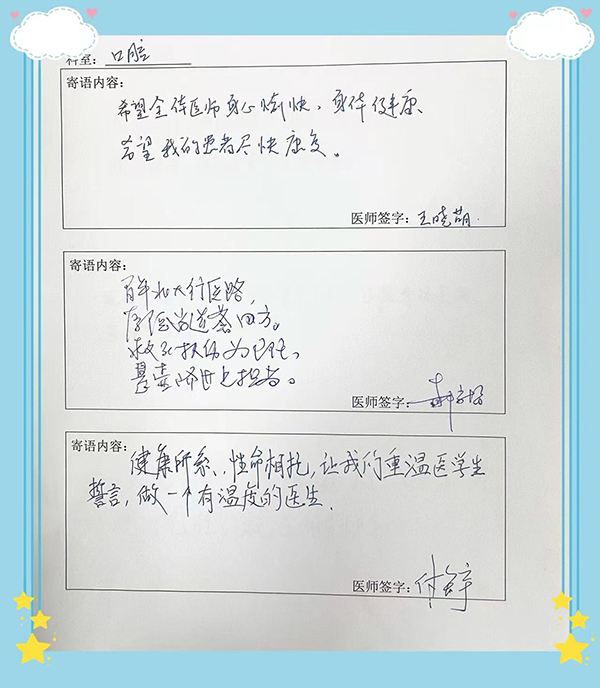 科室: 口腔
寄语内容:
希望全体医师身心愉快、身体健康
希望我的患者尽快康复。
医师签字: 王晓萌
寄语内容:
百年北大行医路,
厚德尚道荟四方。
救死扶伤为己任,
悬壶济世之担当。
医师签字:
寄语内容:
健康所系、性命相托, 让我们重温医学生
誓言, 做一个有温度的医生.
医师签字: